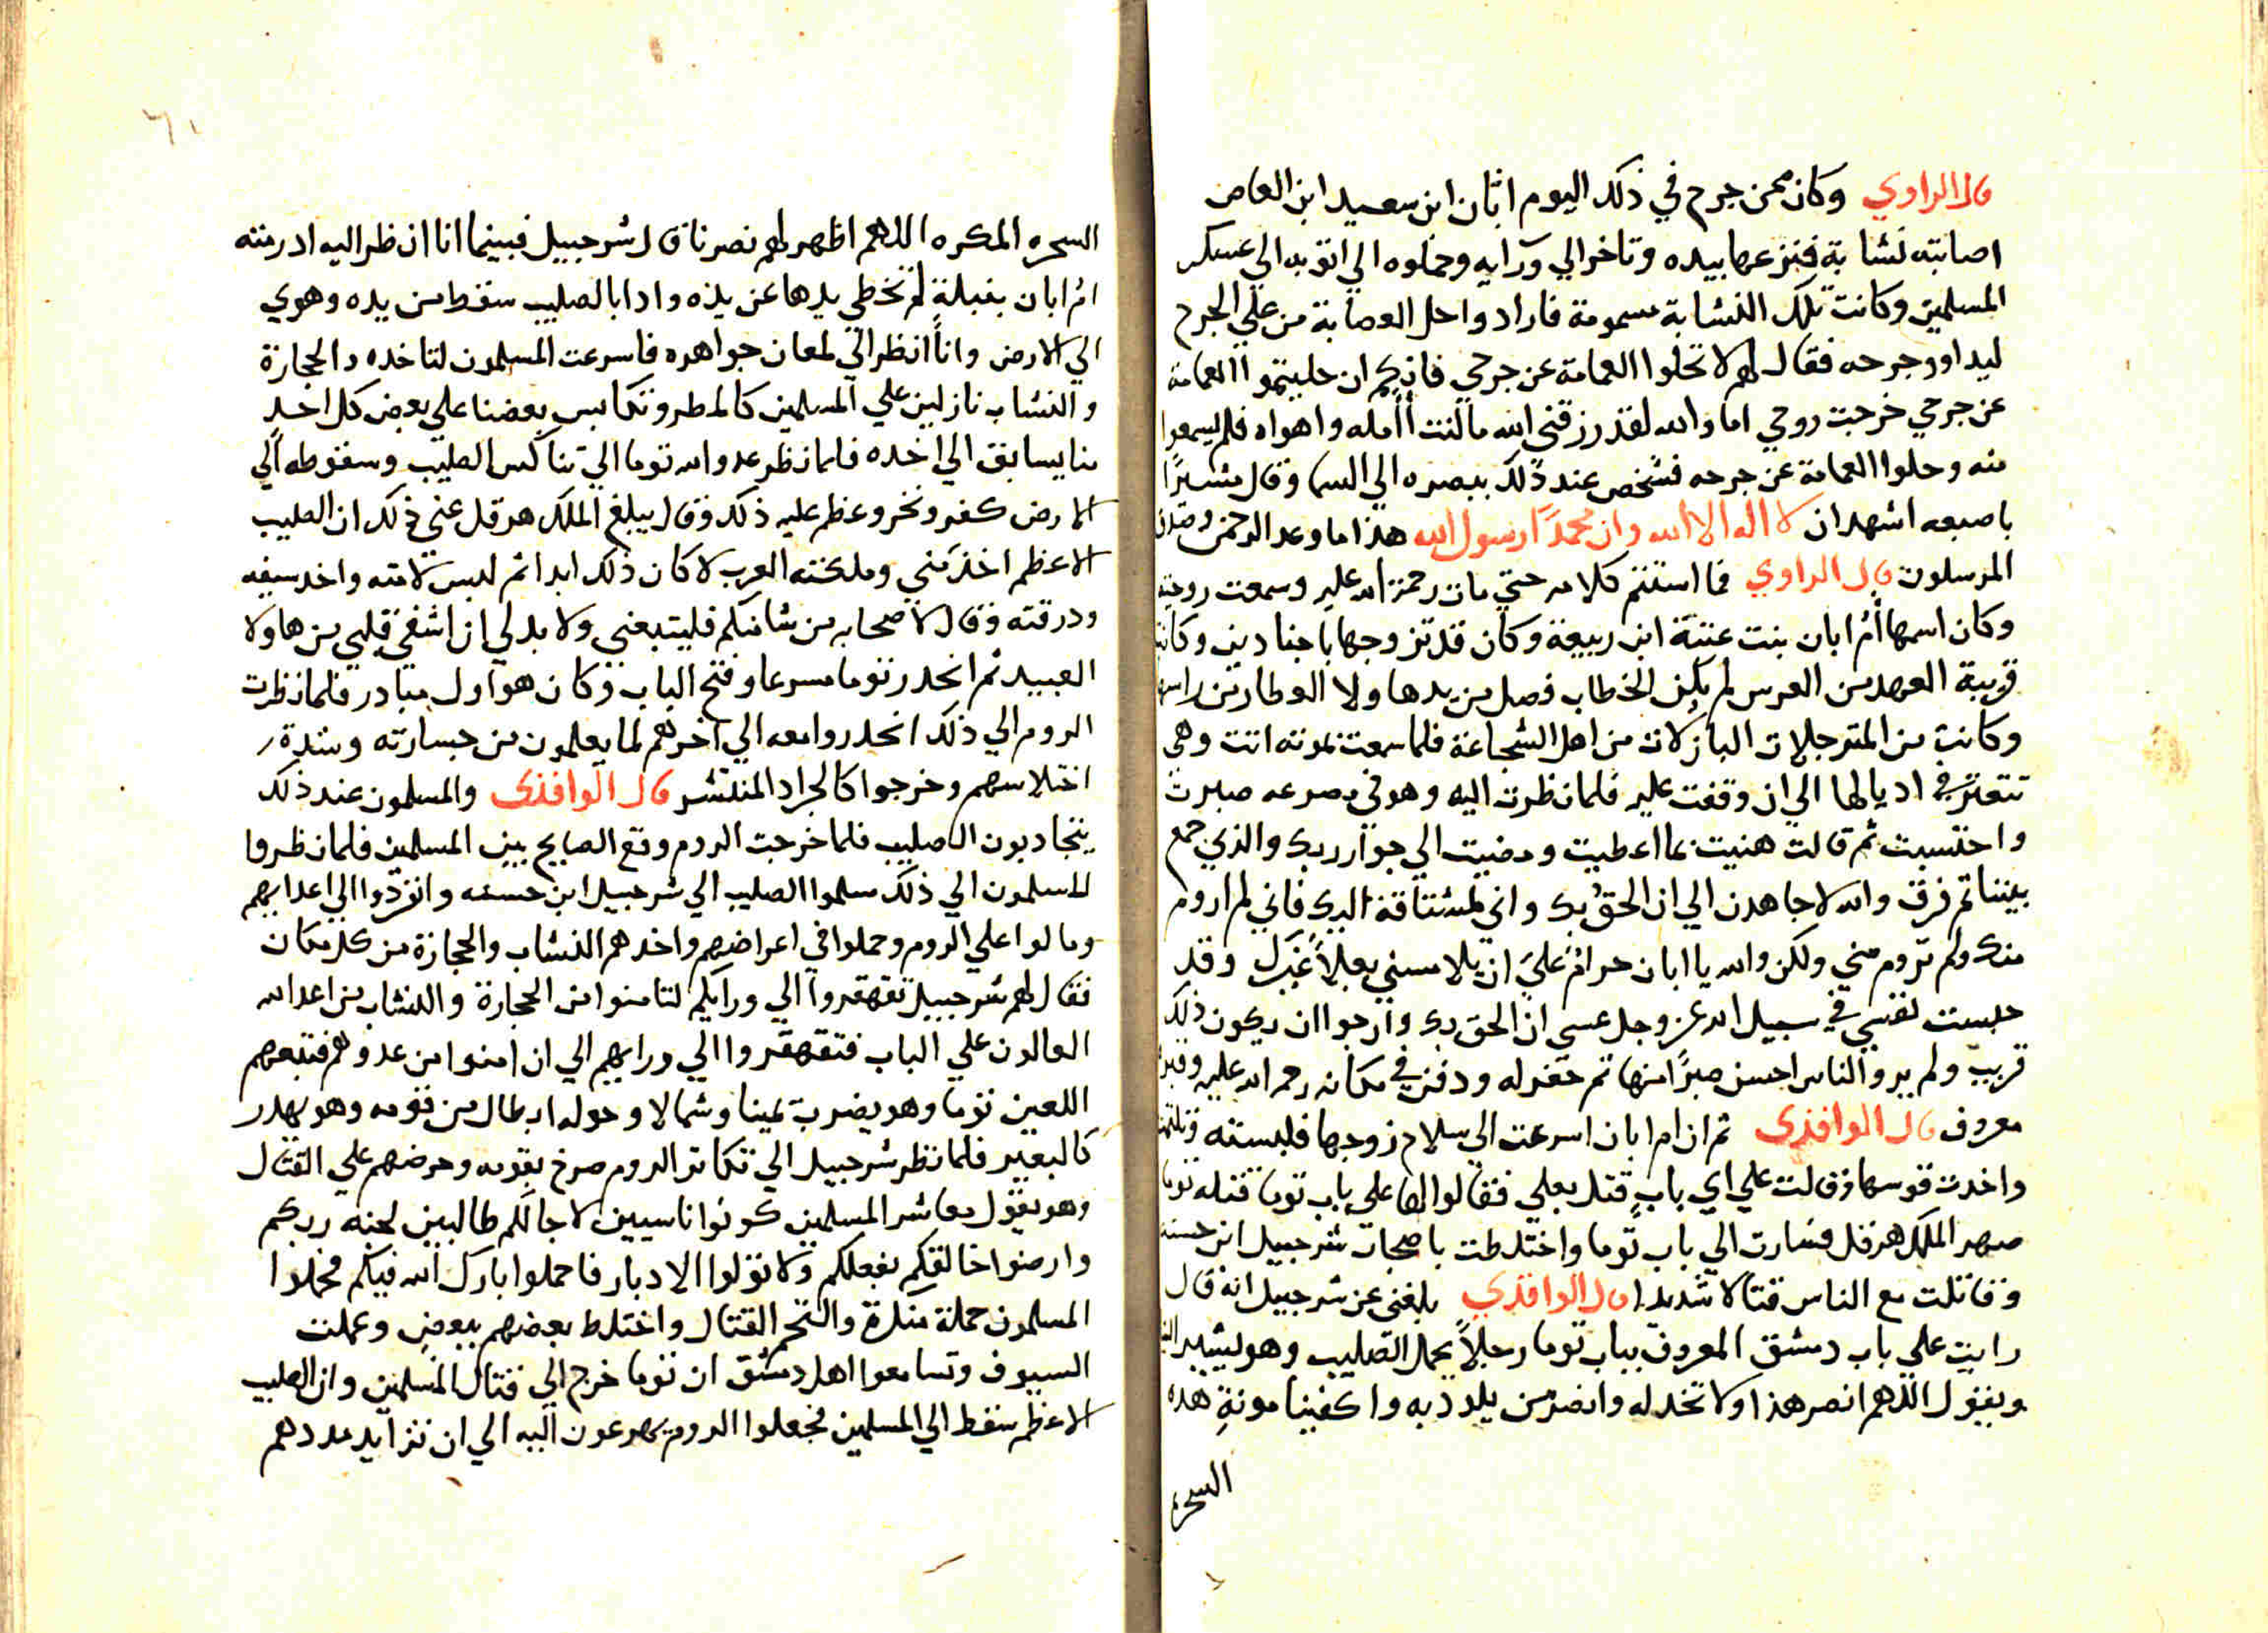 قال الراوي وكان ممن جرح في ذلك اليوم اباّن ابن سعيد ابن العاص
اصابته نشابة فنزعها بيده وتاخر الي ورايه وحملوه الي اتو به الي عسكر
المسلمين وكانت تلك النشابة مسمومة فارادوا حل العصابة من علي الجرح
ليداووا جرحه فقال لهم لا تحلوا العمامة عن جرحي فانكم ان حليتموا العمامة
عن جرحي خرجت روحي اما والله لقد رزقني الله ما كنت أأمله واهواه فلم يسمعوا
منه وحلوا العمامة عن جرحه فشخص عند ذلك ببصره الي السما وقال مشيرًا
باصبعه اشهد ان لا اله الا الله وان محمدًا رسول الله هذا ما وعد الرحمن وصدق
المرسلون قال الراوي فما استتم كلامه حتي مات رحمة الله عليه وسمعت زوجته
وكان اسمها أم ابان بنت عتبة ابن ربيعة وكان قد تزوجها باجنادين وكانت
قريبة العهد من العرس لم يكن الخطاب فصل من يدها ولا العطار من راسها
وكانت من المترجلات البازلات من اهل الشجاعة فلما سمعت بموته اتت وهي
تتعثر في اديالها الي ان وقفت عليه فلما نظرت اليه وهو في مصرعه صبرت
واحتسبت ثم قالت هنيت بما اعطيت ومضيت الي جوار ربك والذي جمع
بيننا ثم فرق والله لاجاهدن الي ان الحق بك واني لمشتاقة اليك فاني لم اروم
منك ولم تروم مني ولكن والله يا ابان حرام عليَ ان يلامسني بعلاً غيرك وقد
حبست نفسي في سبيل الله عز وجل عسي ان الحق بك وارجوا ان يكون ذلك
قريب ولم يروا الناس احسن صبرًا منها ثم حفر له ودفن في مكانه رحمه الله عليه وقبره
معروف قال الواقدي ثم ان ام ابان اسرعت الي سلاح زوجها فلبسته وتلثمت
واخدت قوسها وقالت علي اي بابٍ قتل بعلي فقالوا لها علي باب توما قتله توما
صهر الملك هرقل فسارت الي باب توما واختلطت باصحاب شرجبيل ابن حسنه
وقاتلت مع الناس قتالا شديدا قال الواقدي بلغني عن شرجبيل انه قال
رايت علي باب دمشق المعروف بباب توما رجلاً يحمل الصليب وهو يشير
ويقول اللهم انصر هذا ولا تخدله وانصر من يلودبه واكفينا مونةِ هده
السحره
٦١
السحره المكره اللهم اظهر لهم نصرنا قال شرجبيل فبينما انا انظر اليه اد رمته
ام ابان بنبلة لم تخطي يدها عن يده وادا بالصليب سقط من يده وهوي
الي الارض وانا انظر الي لمعان جواهره فاسرعت المسلمون لتاخده والحجازة
والنشاب نازلين علي المسلمين كالمطر وتكابس بعضنا علي بعض كل احد
منا يسابق الي اخده فلما نظر عدو الله توما الي تناكس الصليب وسقوطه الي
الارض كفر ونخر وعظم عليه ذلك وقال يبلغ الملك هرقل عني ذلك ان الصليب
الاعظم اخد مني وملكته العرب لا كان ذلك ابدا ثم لبس لامته واخد سيفه
ودرقته وقال لاصحابه من شا منكم فليتبعني ولا بد لي ان اشفي قلبي من هاولا
العبيد ثم انحدر توما مسرعا وفتح الباب وكان هو اول مبادر فلما نظرت
الروم الي ذلك انحدروا معه الي اخرهم لما يعلمون من جسارته وشدة
اختلاسهم وخرجوا كالجراد المنتشر قال الواقدي والمسلمون عند ذلك
يتجادبون الصليب فلما خرجت الروم وقع الصايح بين المسلمين فلما نظروا
المسلمون الي ذلك سلموا الصليب الي شرجبيل ابن حسنه وانفردوا الي اعدايهم
ومالوا علي الروم وحملوا في اعراضهم واخدهم النشاب والحجارة من كل مكان
فقال لهم شرجبيل تقهقروا الي ورايكم لتامنوا من الحجارة والنشاب من اعدا الله
العالون علي الباب فتقهقروا الي ورايهم الي ان امنوا من عدوهم فتبعهم
اللعين توما وهو يضرب يمينا وشمالا وحوله ابطال من قومه وهو يهدر
كالبعير فلما نظر شرجبيل الي تكاتر الروم صرخ بقومه وحرضهم علي القتال
وهو يقول معاشر المسلمين كونوا ناسيين لاجالكم طالبين لجنه ربكم
وارضوا خالقكم بفعلكم ولا تولوا الادبار فاحملوا بارك الله فيكم فحملوا
المسلمون حملة منكرة والتحم القتال واختلط بعضهم ببعض وعملت
السيوف وتسامعوا اهل دمشق ان توما خرج الي قتال المسلمين وان الصليب
الاعظم سقط الي المسلمين فجعلوا الروم يهرعون اليه الي ان تزايد عددهم